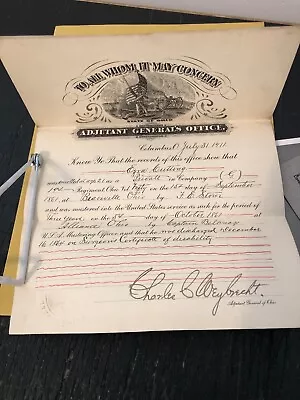 TO ALL WHOM IT MAY CONCERN
STATE OF OHIO
ADJUTANT GENERAL'S OFFICE.
Columbus O July 31 1911
Know Ye That the records of this office show that
Ezra
was enrolled at age 21 as a Private in Company (G)
19th Regiment Ohio Vol Infty on the 1st day of September
1861 at Ohio by T. E.
and was mustered into the United States service as such for the period of
three years on the day of October 1861 at
Alliance Ohio by Captain
U.S.A. Mustering Officer and that he was discharged December
16 1864 on Surgeons Certificate of disability
Charles C Weybrecht.
Adjutant General of Ohio